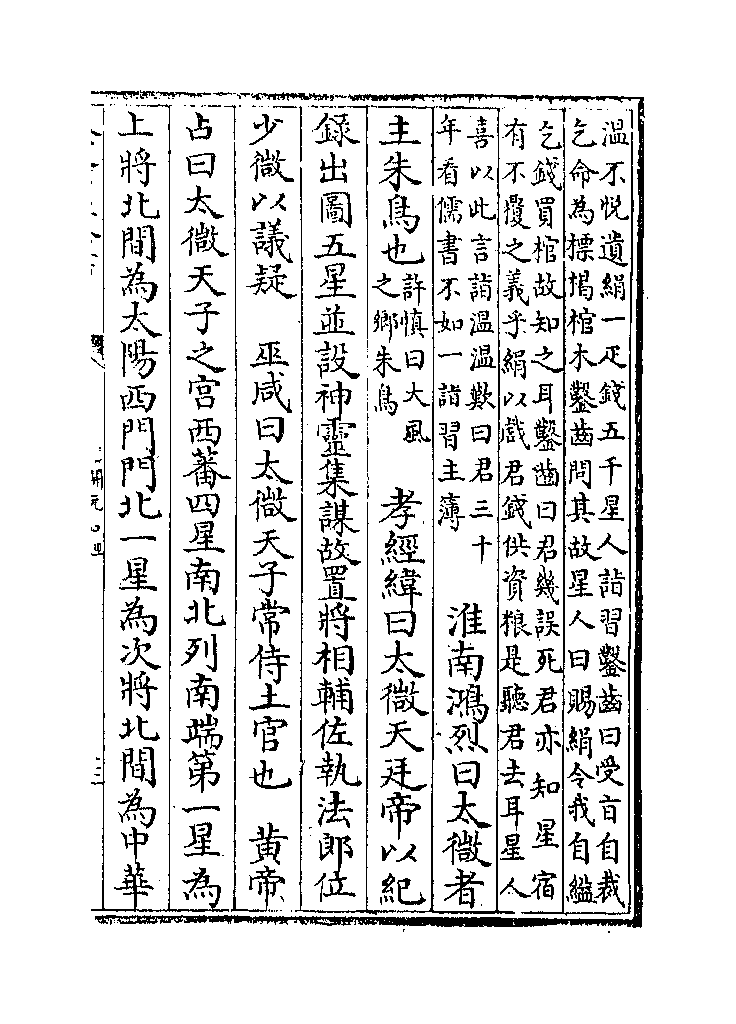 温不悦遺絹一疋錢五千星人詣習鑿齒曰受㫖自裁
乞命為標掲棺木鑿齒問其故星人曰賜絹令我自縊
乞錢買棺故知之耳鑿齒曰君幾誤死君亦知星宿
有不覆之義乎絹以戲君錢供資粮是聽君去耳星人
喜以此言詣温温歎曰君三十
年看儒書不如一詣習主簿
淮南鴻烈曰太微者
主朱鳥也
許慎曰大風
之鄉朱鳥
孝經緯曰太微天廷帝以紀
錄出圖五星並設神靈集謀故置將相輔佐執法郎位
少微以議疑 巫咸曰太微天子常侍土官也 黄帝
占曰太微天子之宫西蕃四星南北列南端第一星為
上將北間為太陽西門門北一星為次將北間為中華